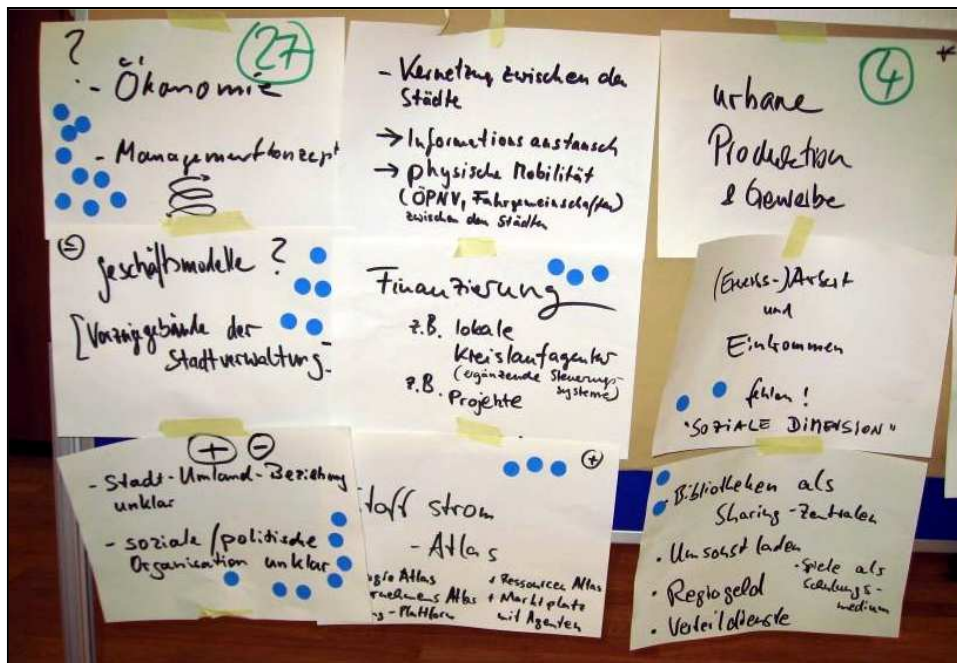 ?
27
- Ökonomie
- Managementkonzept
- Vernetzung zwischen den
Städte
→ Informationsaustausch
→ physische Mobilität
(ÖPNV, Fahrgemeinschaften)
zwischen den Städten
4
*
urbane
Produktion
& Gewerbe
Geschäftsmodelle ?
[Vorzeigebäude der
Stadtverwaltung
Finanzierung
z.B. lokale
Kreislaufagentur
(ergänzende Steuerungs-
systeme)
z.B. Projekte
(Erwerbs-)Arbeit
und
Einkommen
fehlen!
"SOZIALE DIMENSION"
+ -
- Stadt-Umland-Beziehung
unklar
- soziale/politische
Organisation unklar
+
toff strom
- Atlas
Atlas
+ Ressourcen Atlas
Atlas
+ Marktplatz
- Plattform
mit Agenten
· Bibliotheken als
Sharing-Zentralen
· Umsonstladen
- Spiele als
· Regiogeld
medium
· Verteildienste